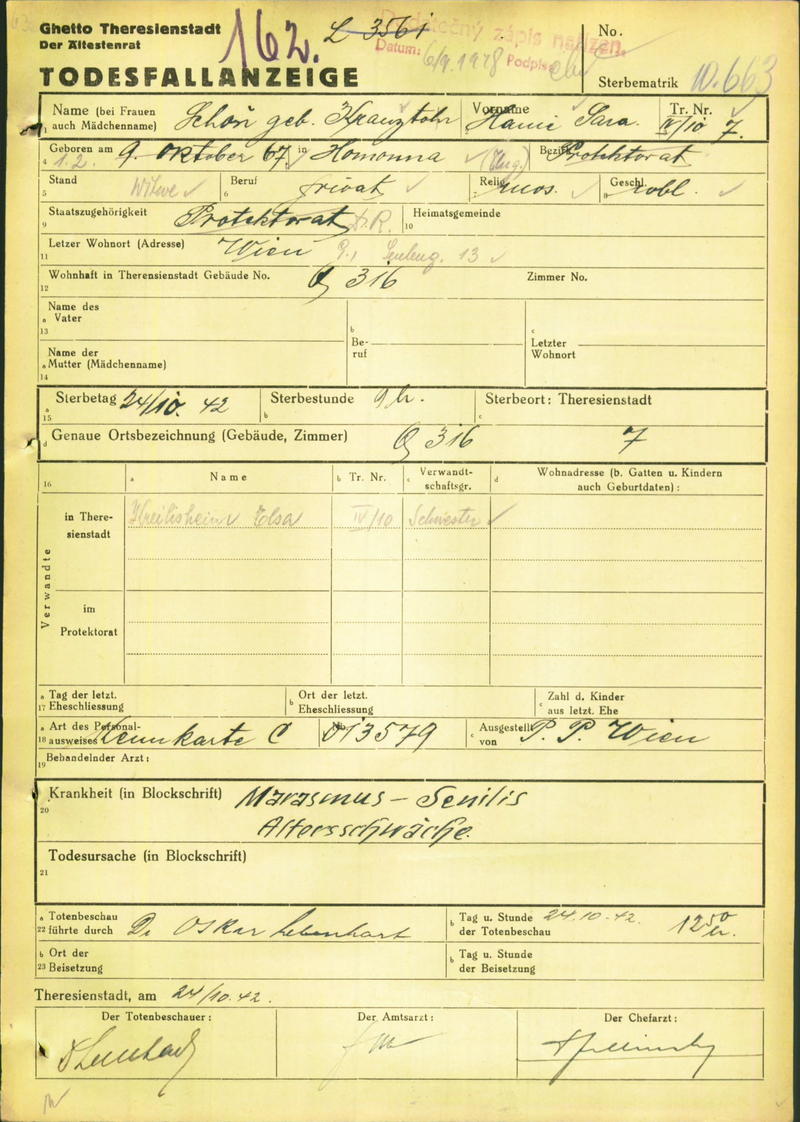 Ghetto Theresienstadt
Der Ältestenrat
TODESFALLANZEIGE
162.
L 3561
Dodatečný zápis nařízen
Datum: 6/9.1978 Podpis:
No.
Sterbematrik 10.663
1 Name (bei Frauen auch Mädchenname) Schön geb. Kranztohr Vorname Hani Sara. Tr. Nr. IV/10 7.
4 Geboren am 9. Oktober 67 in Homonna (Ung.) Bezirk Protektorat
1.2.
5 Stand Witwe 6 Beruf privat Relig. mos. Geschl.
9 Staatszugehörigkeit Protektorat D.R. 10 Heimatsgemeinde
11 Letzer Wohnort (Adresse) Wien 9., 13
12 Wohnhaft in Therensienstadt Gebäude No. Q 316 Zimmer No.
13 a Name des Vater
b Beruf
c Letzter Wohnort
14 a Name der Mutter (Mädchenname)
15 a Sterbetag 24/10. 42 b Sterbestunde 9 h. c Sterbeort: Theresienstadt
d Genaue Ortsbezeichnung (Gebäude, Zimmer) Q 316 7
16 a Name b Tr. Nr. c Verwandtschaftsgr. d Wohnadresse (b. Gatten u. Kindern auch Geburtdaten):
Verwandte
in Theresienstadt Elsa IV/10 Schwester
im Protektorat
17 a Tag der letzt. Eheschliessung b Ort der letzt. Eheschliessung c Zahl d. Kinder aus letzt. Ehe
18 a Art des Personalausweises Kennkarte C b No. 013579 c Ausgestellt von P. P. Wien
19 Behandelnder Arzt:
20 Krankheit (in Blockschrift) Marasmus - Senilis
Altersschwäche.
21 Todesursache (in Blockschrift)
22 a Totenbeschau führte durch Dr Oskar b Tag u. Stunde der Totenbeschau 24.10.42. 12 50 h.
23 b Ort der Beisetzung b Tag u. Stunde der Beisetzung
Theresienstadt, am 24/10.42.
Der Totenbeschauer: Der Amtsarzt: Der Chefarzt: